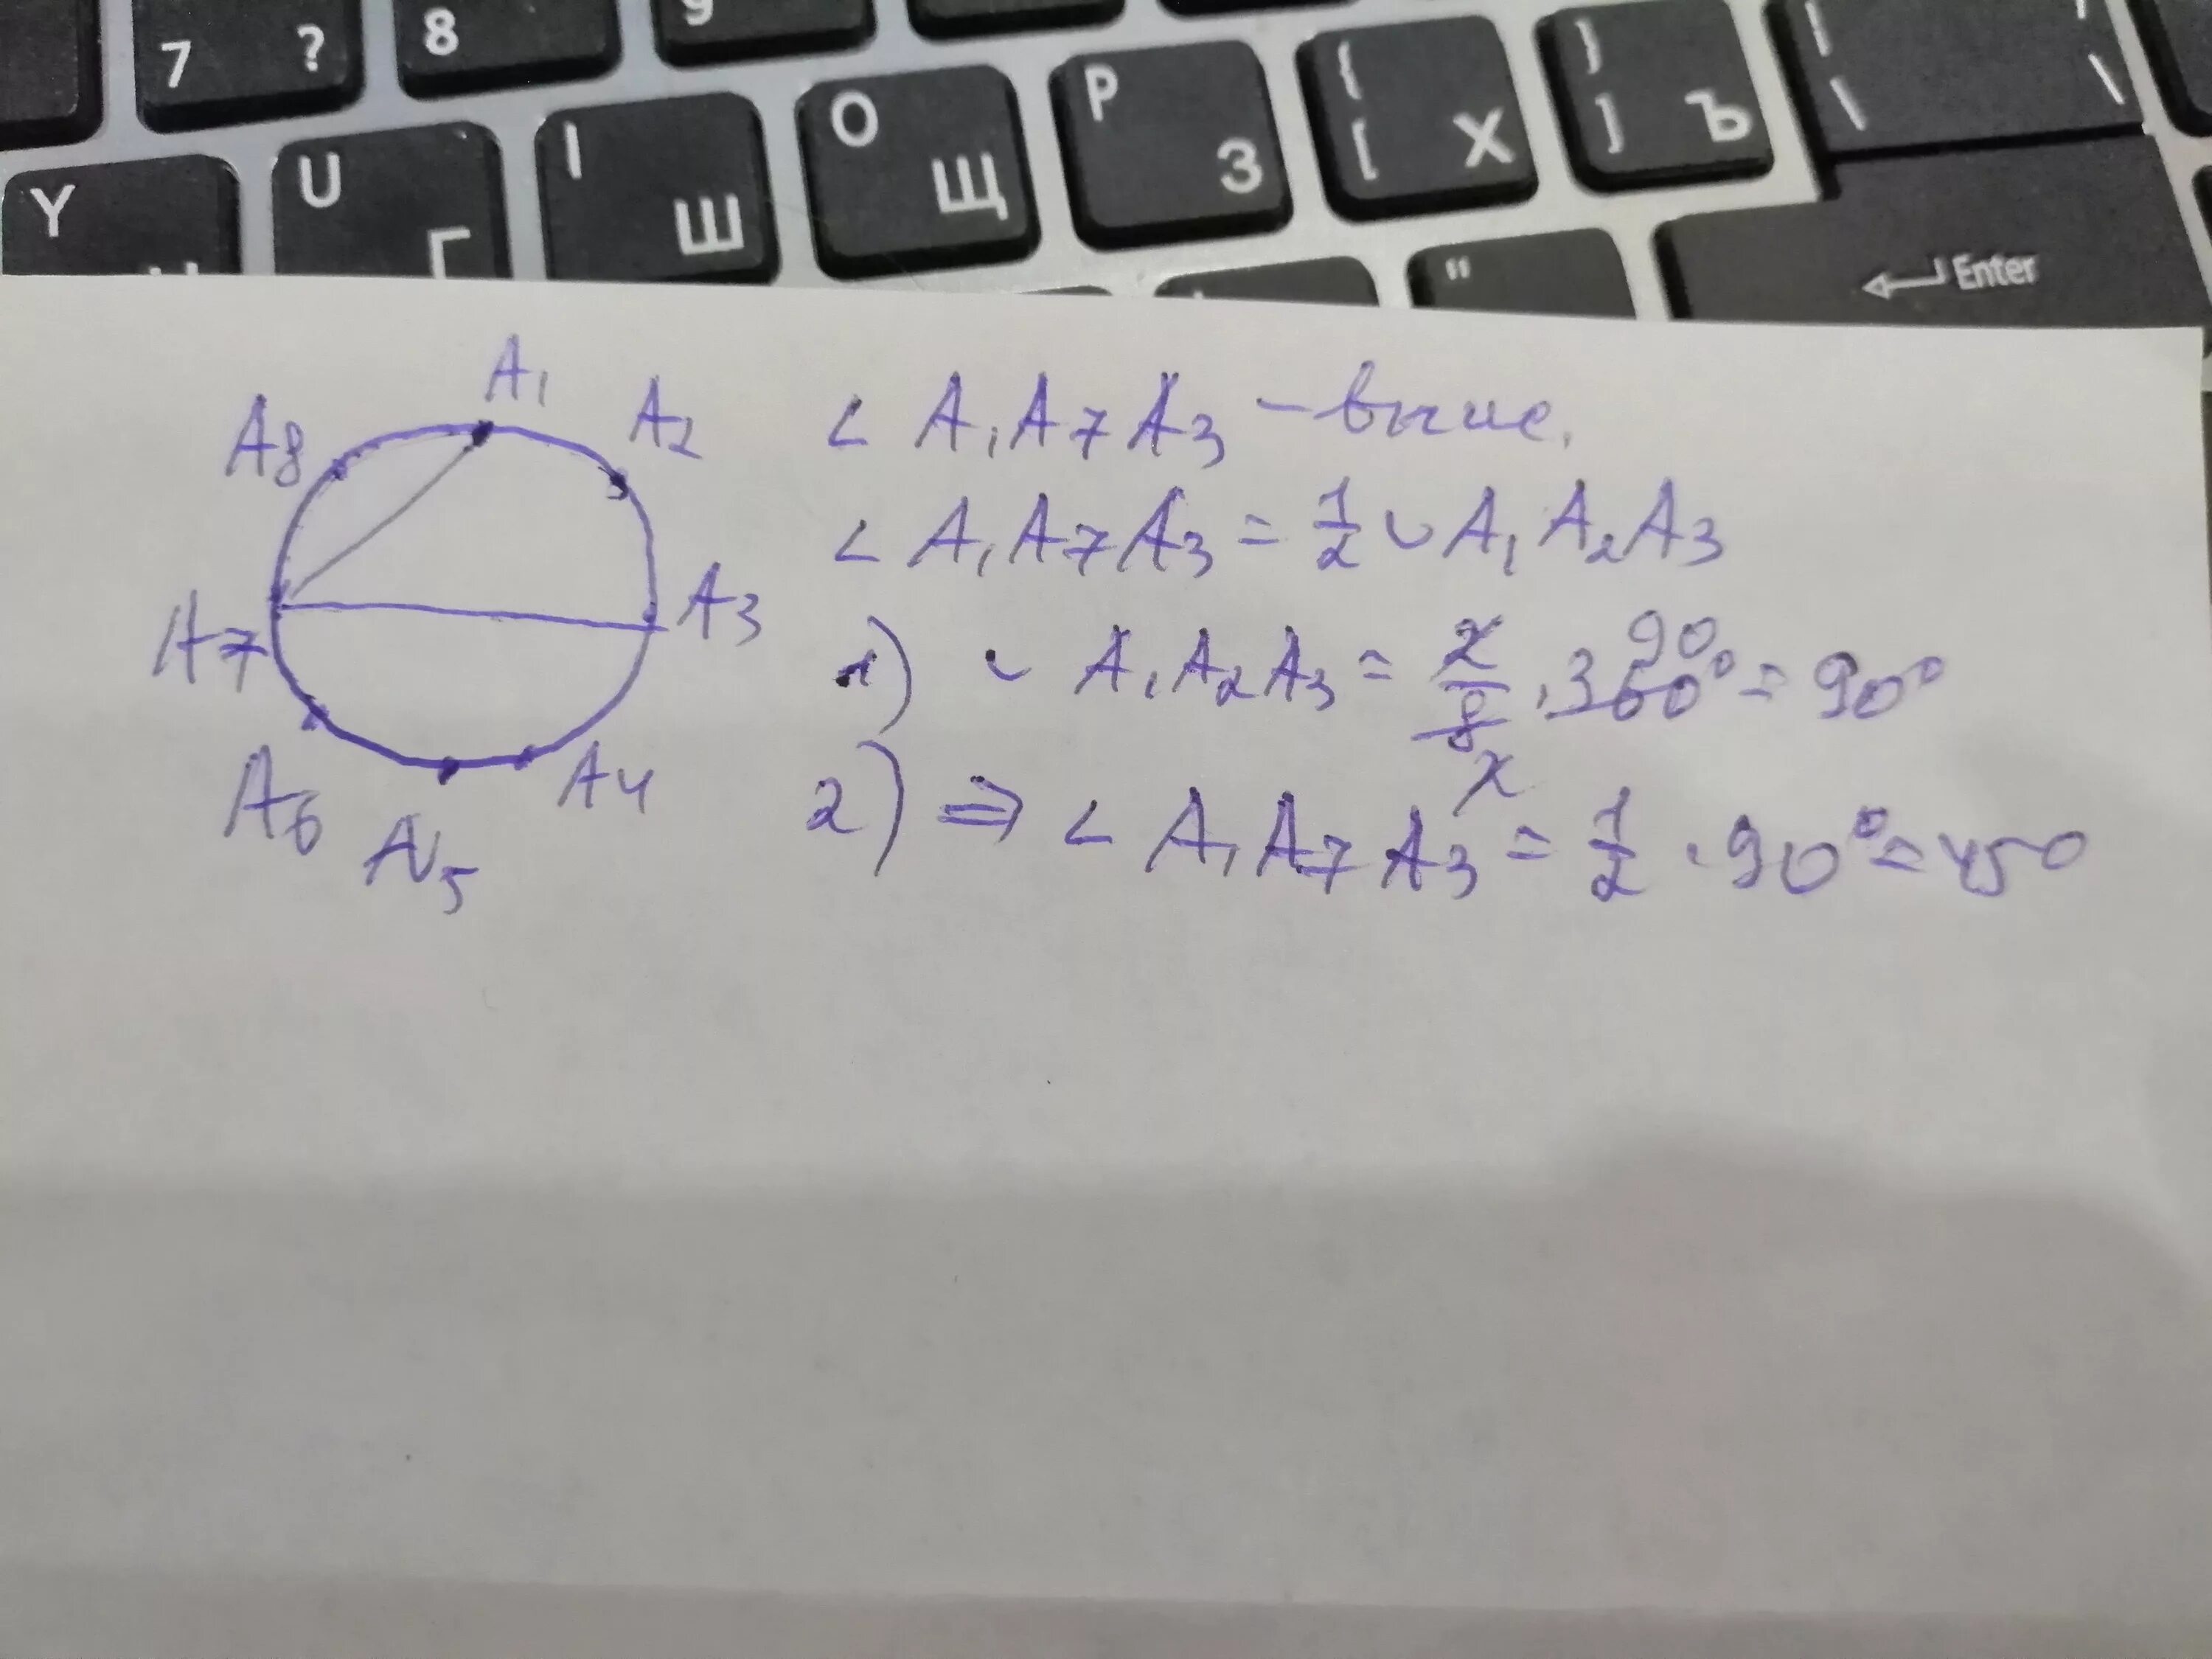 7 ? 8 9
Y U Г I Ш O Щ P З { [ Х } ] Ъ | \
" Enter
A1
A8 A2
A7 A3
A6 A4
A5
< A1A7A3 –
< A1A7A3 = 1/2 ◡ A1A2A3
1) ◡ A1A2A3 = 2/8 · 360° = 90°
90
2) ⇒ < A1A7A3 = 1/2 · 90° = 450